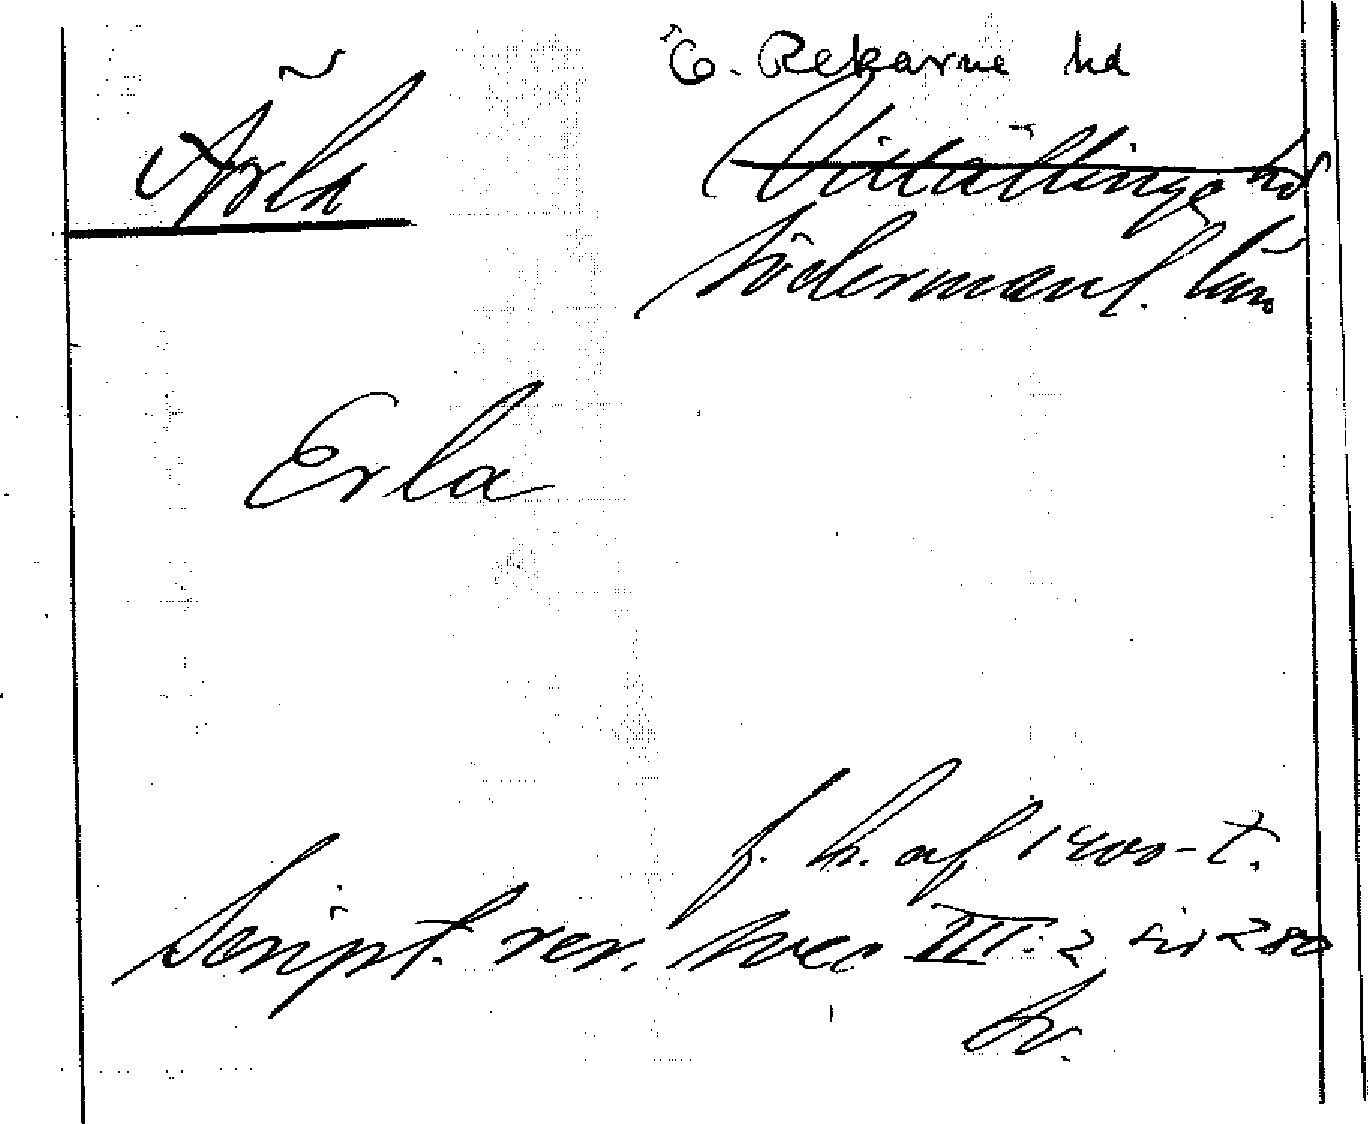 Ärla
Ö. Rekarne hd
Villåttinge hd
Södermanl. län
Erla
f. h. af 1400-t.
Script. rer. svec III: 2 sid 280